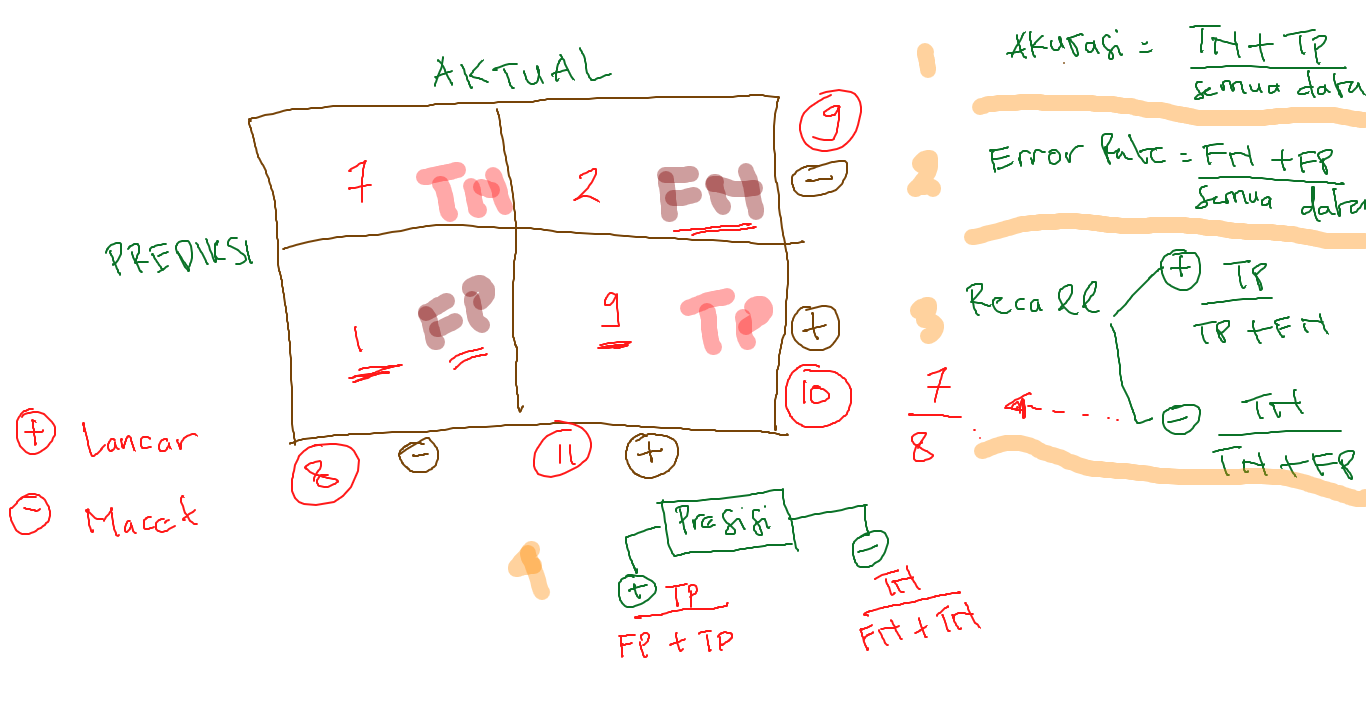 AKTUAL
PREDIKSI
7 TN 2 FN
1 FP 9 TP
9
-
+
10
8 - 11 +
+ Lancar
- Macet
1 Akurasi = TN + TP
semua data
2 Error Rate = FN + FP
semua data
3 Recall
+ TP
TP + FN
- TN
TN + FP
7
8
4 Presisi
+ TP
FP + TP
- TN
FN + TN